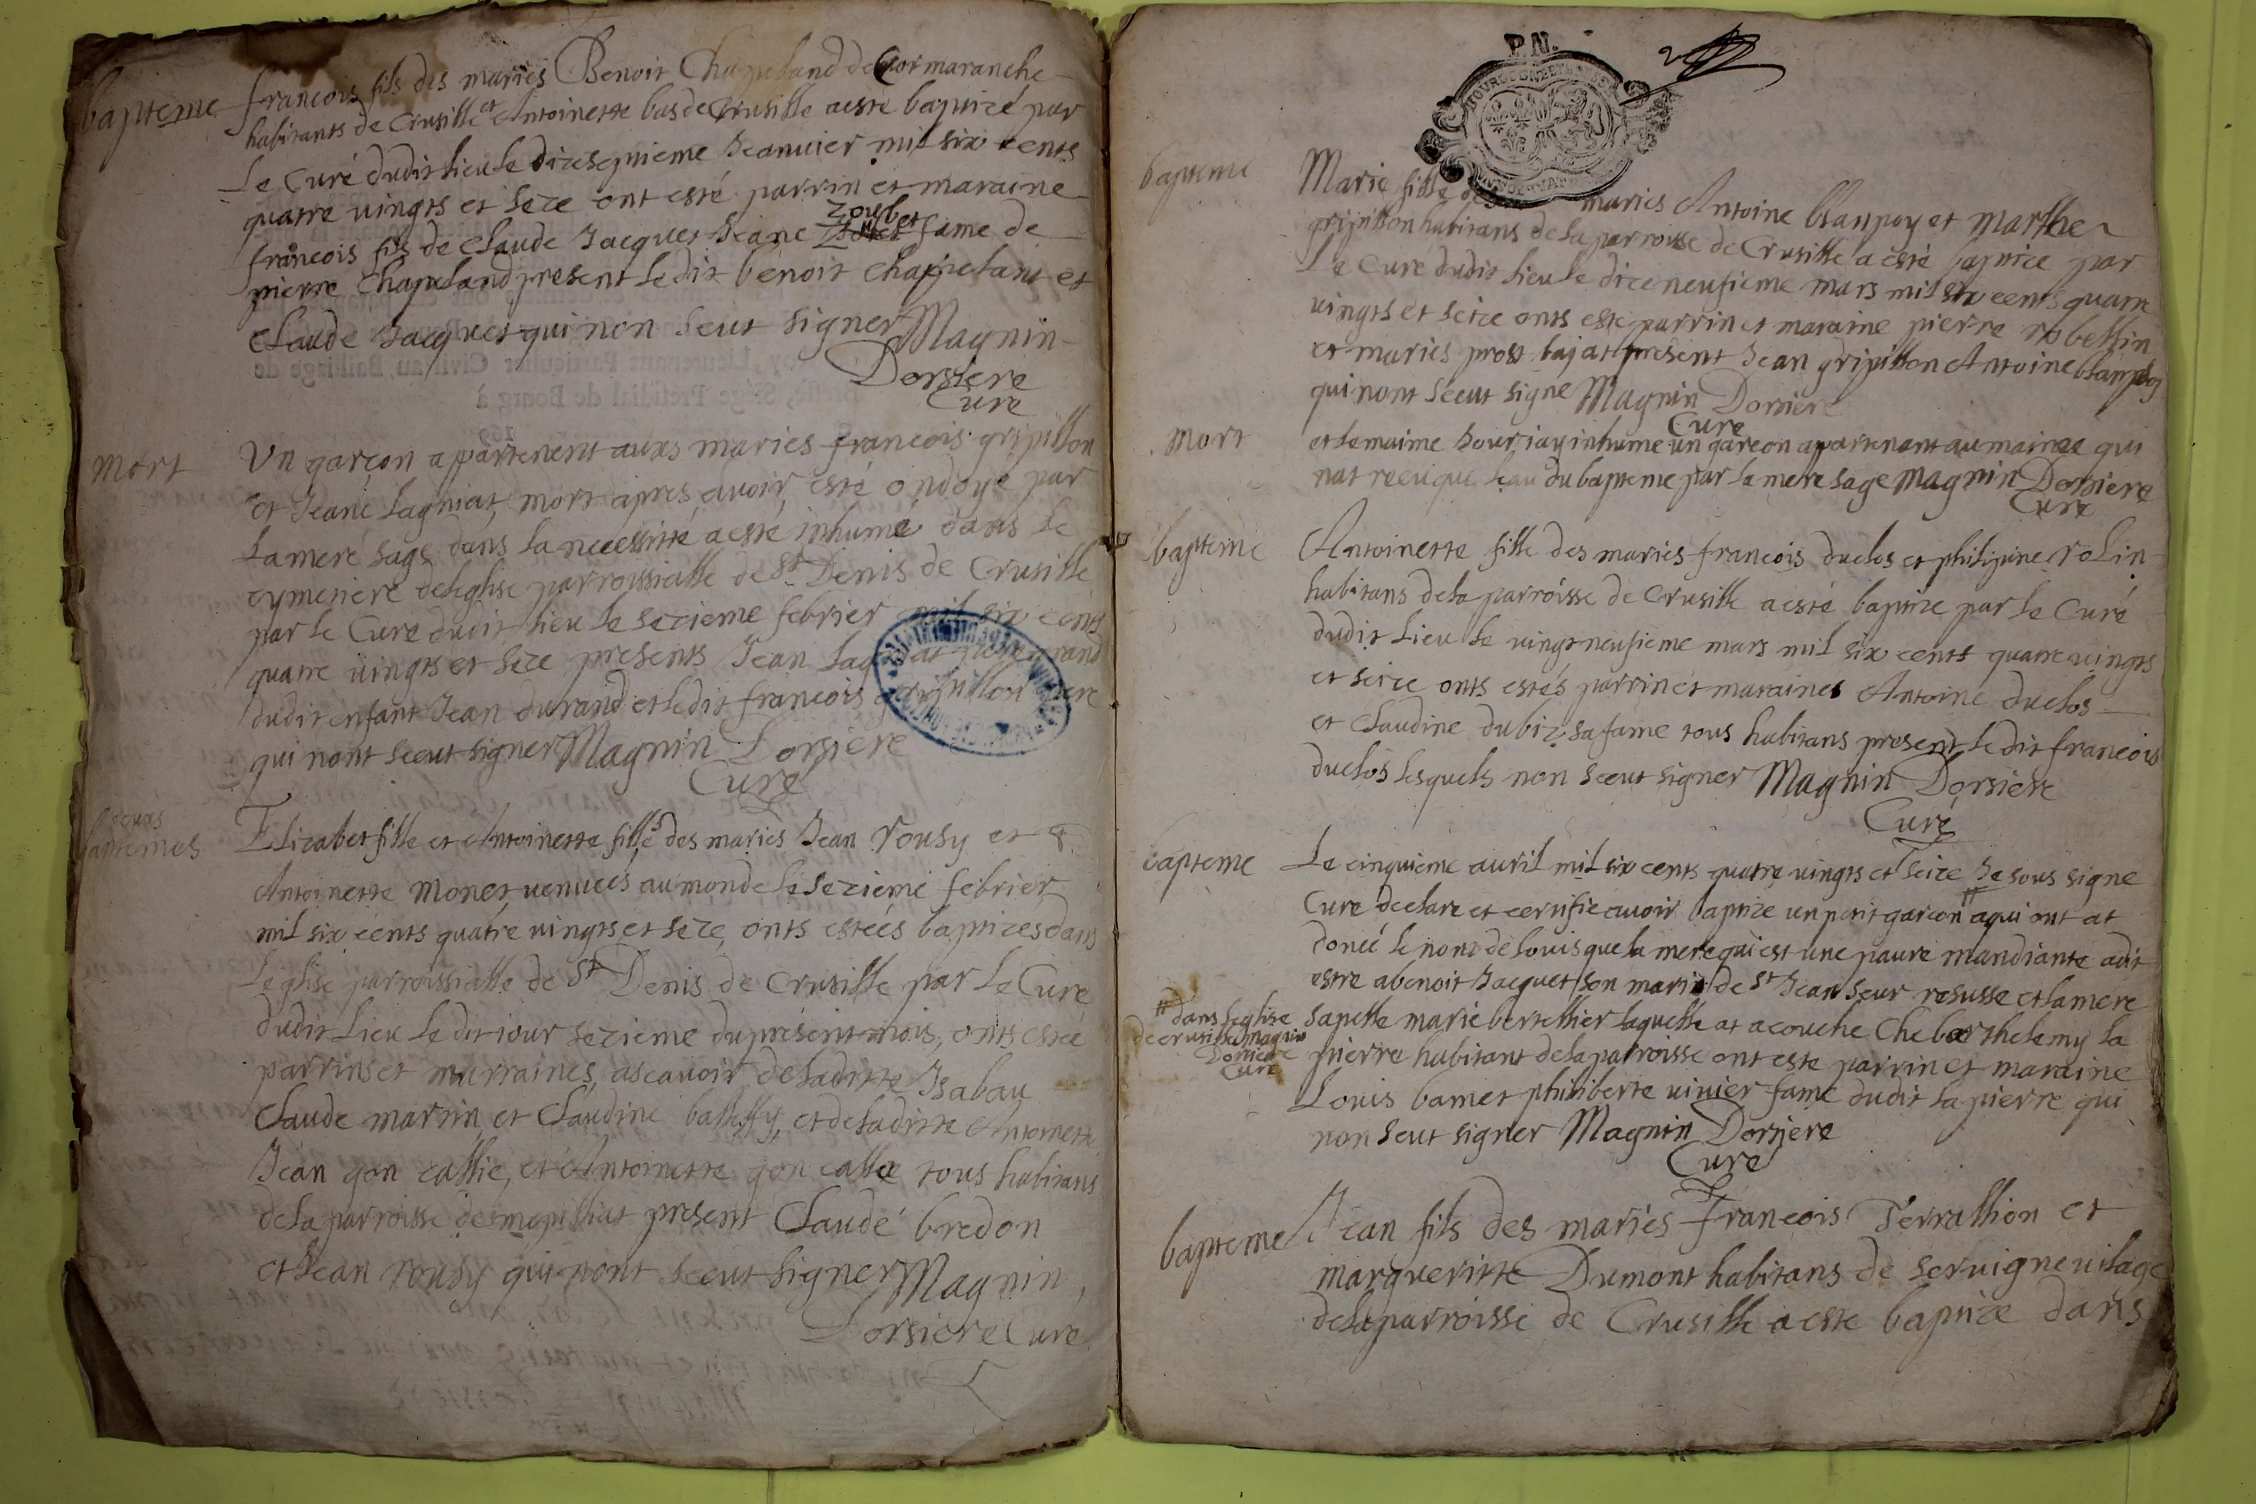 bapteme
francois fils des maries Benoit Chapeland de Cormaranche
habitants de Crusille et Antoinette bas de Crusille a esté baptizé par
Le Curé dudit lieu le dixseptieme Jeanuier mil six cents
quatre uingts et seze ont esté parrin et maraine
francois fils de Claude Jacquet Jeane fame de
pierre Chapeland present le dit benoit chappelant et
Claude Jacquet qui non seut signer Magnin
Dorsiere
Cure
mort
Un garcon appartenent auxs maries francois gripillon
et Jeane Lagniat, mort apres avoir esté ondoyé par
La mere sage dans la necessitté a esté inhumé dans le
cymetiere de leglise parroissialle de St Denis de Crusille
par le Curé dudit lieu le sezieme febrier mil six cents
quatre uingts et seze presents Jean
dudit enfant Jean durand et le dit francois gripillon pere
qui nont sceut signer Magnin Dorsiere
Curé
deuxs
baptemes
Elizabet fille et Antoinette fille des maries Jean rousy et
Antoinette Monet, venuees au monde le sezieme febrier
mil six cents quatre uingts et seze, onts estées baptizes dans
Leglise parroissialle de St Denis de Crusille par Le Curé
dudit Lieu le dit iour sezieme du present mois, onts estee
parrins et marraines, ascauoir de la ditte Isabau
Claude martin et Claudine, et de la ditte Antoinette
Jean gon callie, et Antoinette gon callie tous habitans
de la parroisse de mepilliat present Claude bredon
et Jean rousy qui nont sceut signer Magnin,
Dorsiere Cure
P.N.
bapteme
Marie fille des maries Antoine blanpoy et Marthe
gripillon habitans de la parroisse de Crusille a esté baptize par
Le Cure dudit lieu le dizeneufieme mars mil six cents quatre
uingts et seize onts esté parrin et maraine pierre robellin
et maries prost bajat present Jean gripillon Antoine blanpoy
qui nont sceut signe Magnin Dorsiere
Cure
mort
et le maime Jour iay inhume un garcon appartenant au maimes qui
nat receu que leau du bapteme par la mere sage Magnin Dorsiere
Cure
bapteme
Antoinette fille des maries francois duclos et philipine rolin
habitans de la parroisse de Crusille a esté baptize par le Curé
dudit Lieu le uingtneufieme mars mil six cents quatre uingts
et seize onts estés parrin et maraines Antoine duclos
et Claudine dubiz sa fame tous habitans present le dit francois
duclos lesquels non sceut signer Magnin Dorsiere
Curé
bapteme
Le cinquieme auril mil six cents quatre uingts et seize Je sous signe
Cure declare et certifie auoir baptize un petit garcon # a qui ont at
doneé le nom de Louis que la mere qui est une paure mandiante a dit
estre a benoit Jacquet son marit de St Jean seur resusse et la mere
# dans leglise
de crusille magnin
Dorsiere
Cure
sapelle marie bertellier laquelle at acouche Che barthelemy la
pierre habitant de la parroisse ont esté parrin et maraine
Louis bamet philiberte uiuier fame dudit la pierre qui
non seut signer Magnin Dorsiere
Curé
bapteme
Jean fils des maries francois Terrallion et
margueritte Dumont habitans de seruigne uilage
de la parroisse de Crusille a esté baptize dans